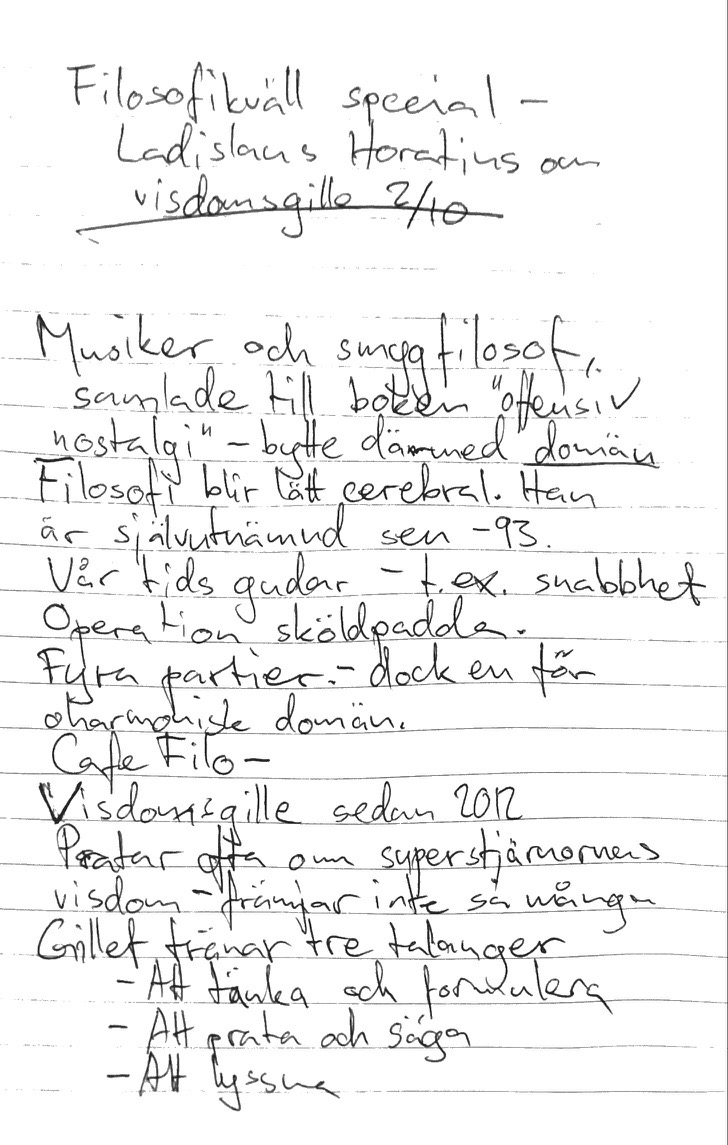 Filosofikväll special -
Ladislaus Horatius om
visdomsgille 2/10
Musiker och smygfilosof,
samlade till boken "offensiv
nostalgi" - bytte därmed domän
Filosofi blir lätt cerebral. Han
är självutnämnd sen -93.
Vår tids gudar - t.ex. snabbhet
Operation sköldpadda.
Fyra partier. - dock en för
oharmonisk domän.
Cafe Filo -
Visdomsgille sedan 2012
Pratar ofta om superstjärnornas
visdom - främjar inte så många
Gillet tränar tre talanger
- Att tänka och formulera
- Att prata och säga
- Att lyssna